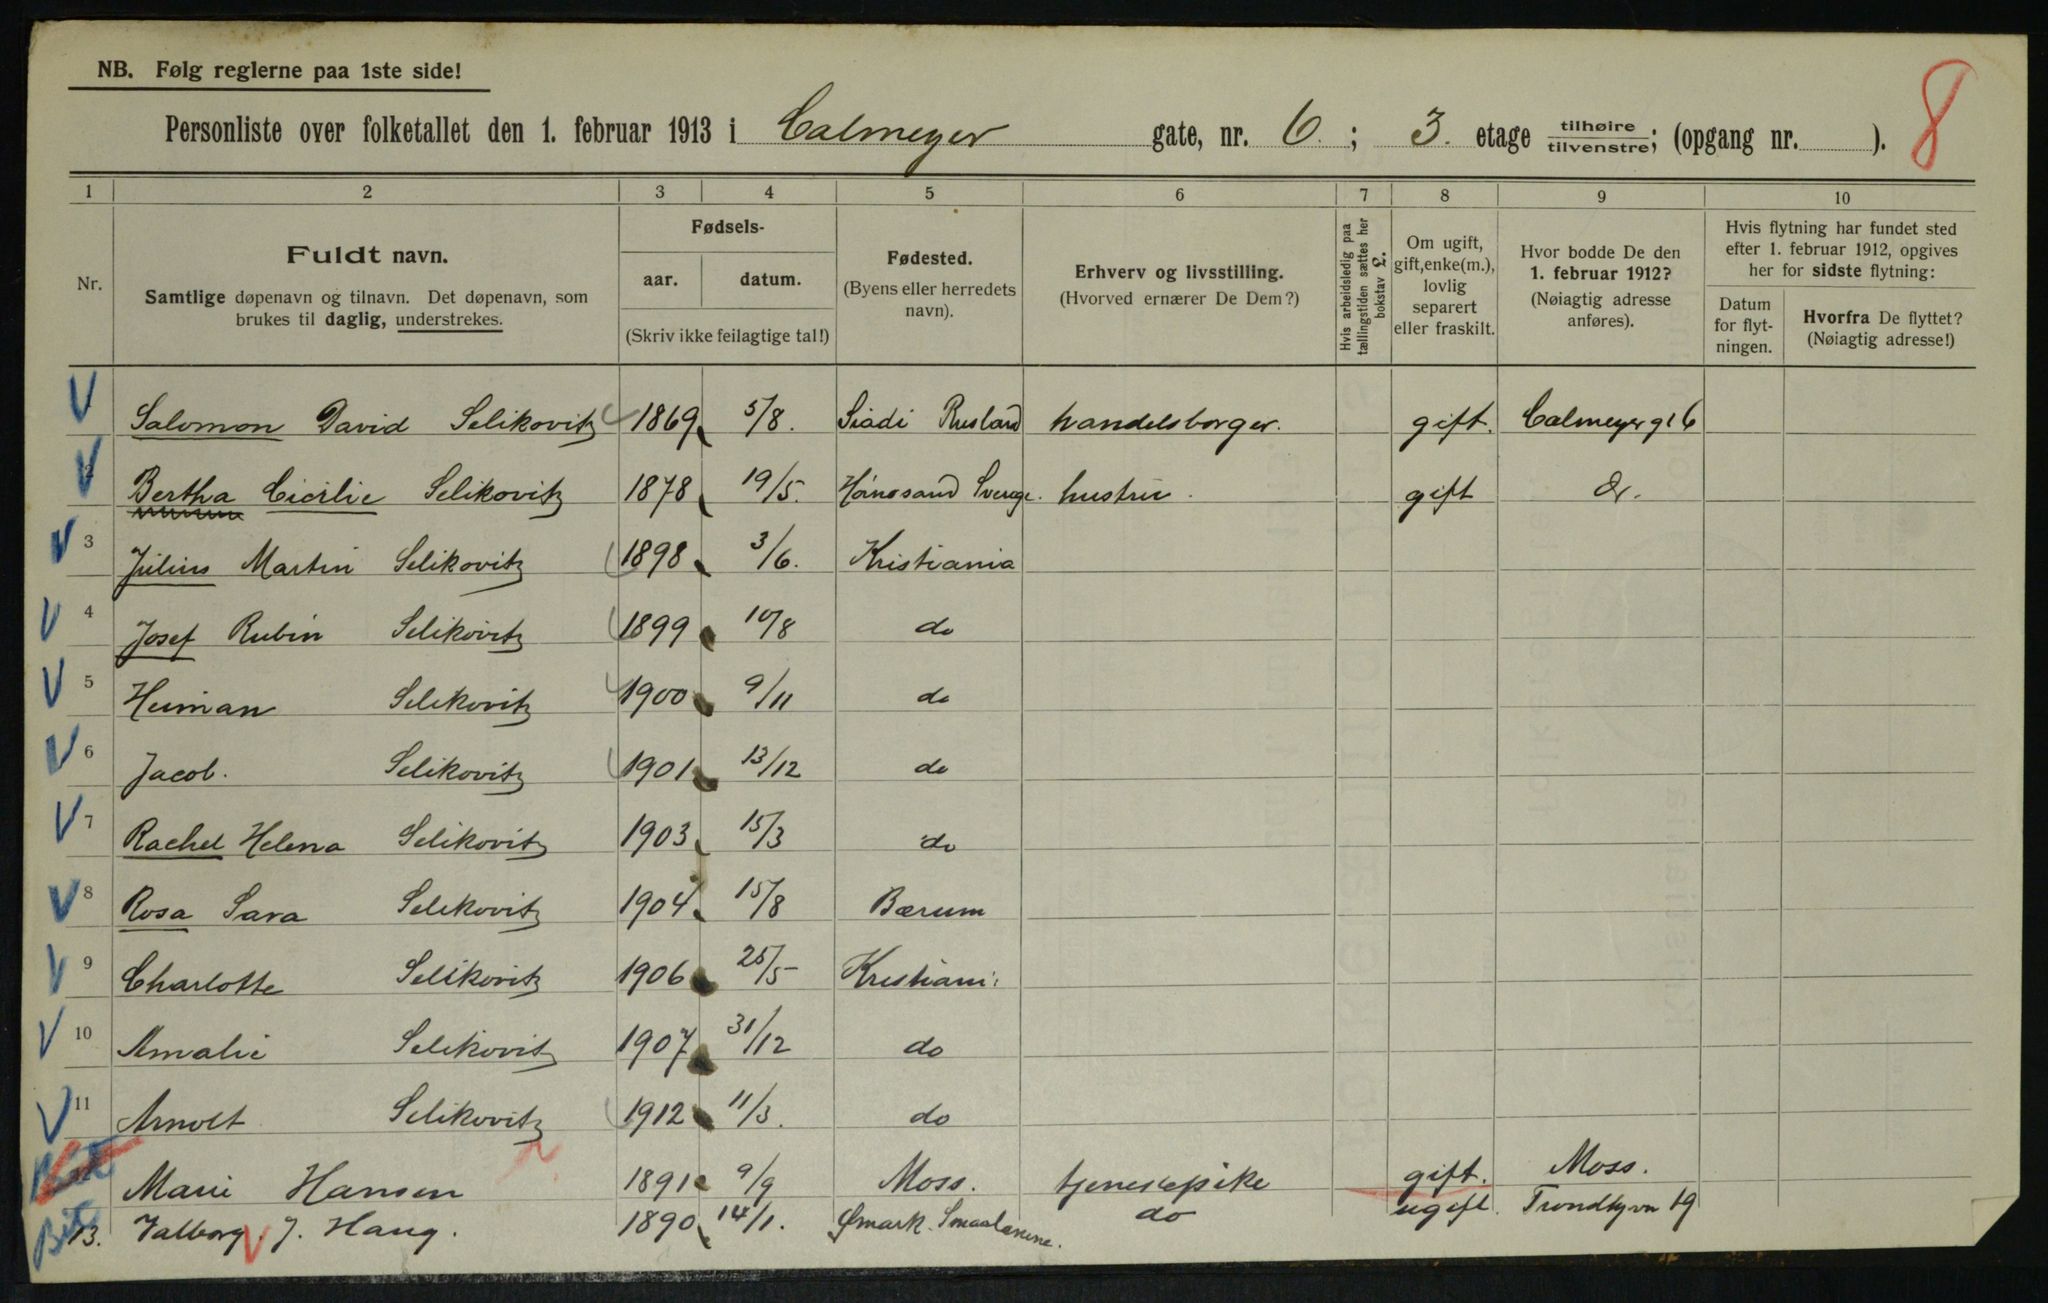 NB. Følg reglerne paa 1ste side!
8
Personliste over folketallet den 1. februar 1913 i Calmeyer gate, nr. 6. ; 3. etage tilhøire tilvenstre; (opgang nr. ).
1 2 3 4 5 6 7 8 9 10
Nr.
Fuldt navn.
Samtlige døpenavn og tilnavn. Det døpenavn, som
brukes til daglig, understrekes.
Fødsels-
aar. datum.
(Skriv ikke feilagtige tal!)
Fødested.
(Byens eller herredets
navn).
Erhverv og livsstilling.
(Hvorved ernærer De Dem?)
Hvis arbeidsledig paa
tællingstiden sættes her
bokstav L.
Om ugift,
gift, enke(m.),
lovlig
separert
eller fraskilt.
Hvor bodde De den
1. februar 1912?
(Nøiagtig adresse
anføres).
Hvis flytning har fundet sted
efter 1. februar 1912, opgives
her for sidste flytning:
Datum
for flyt-
ningen.
Hvorfra De flyttet?
(Nøiagtig adresse!)
Salomon David Selikovitz 1869 5/8. Siadi Rusland handelsborger. gift. Calmeyergt 6
2 Bertha Cicilie Selikovitz 1878 19/5. Hernosand Sverige. hustru. gift do.
3 Julius Martin Selikovitz 1898 3/6. Kristiania
4 Josef Rubin Selikovitz 1899 10/8 do
5 Heiman Selikovitz 1900 9/11 do
6 Jacob. Selikovitz 1901 13/12 do
7 Rachel Helena Selikovitz 1903 15/3 do
8 Rosa Sara Selikovitz 1904 15/8 Bærum
9 Charlotte Selikovitz 1906 25/5 Kristiani:
10 Amalie Selikovitz 1907 31/12 do
11 Arnolt Selikovitz 1912 11/3. do
Marie Hansen 1891 9/9 Moss. tjenestepike gift. Moss.
13. Valborg J. Haug. 1890 14/1. Ømark. Smaalenene. do ugift. Trondhjvn 19